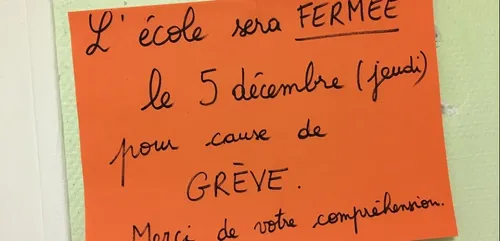 L'école sera FERMÉE
le 5 décembre (jeudi)
pour cause de
GRÈVE.
Merci de votre compréhension.